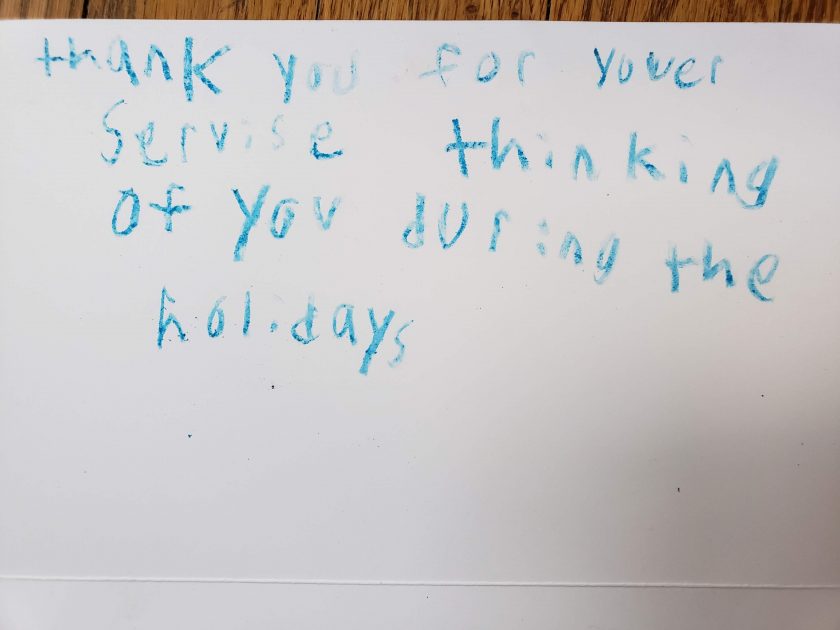 thank you for yower
Servise thinking
of you during the
holidays